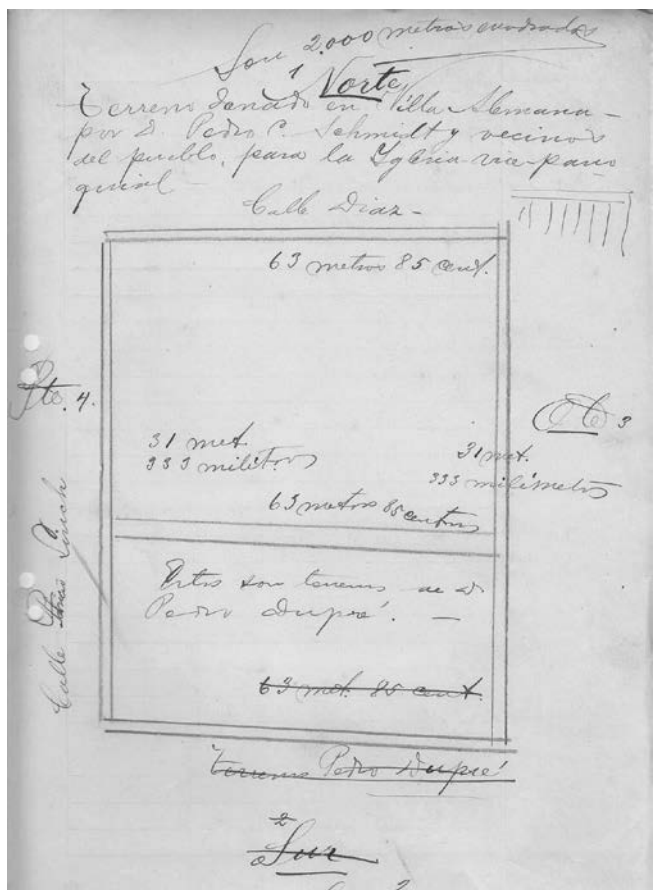 Son 2.000 metros cuadrados
1 Norte
Terreno donado en Villa Alemana –
por D. Pedro C. Schmidt y vecinos
del pueblo, para la Yglesia vice-parro
quial –
Calle Diaz –
63 metros 85 cent.
Pte. 4.
Ote 3
31 met.
333 milítros
31 met.
333 milímetros
63 metros 85 centros
Calle Linch
Estos son terrenos de D.
Pedro Dupré. —
63 met. 85 cent.
terrenos Pedro Dupré
2
Sur